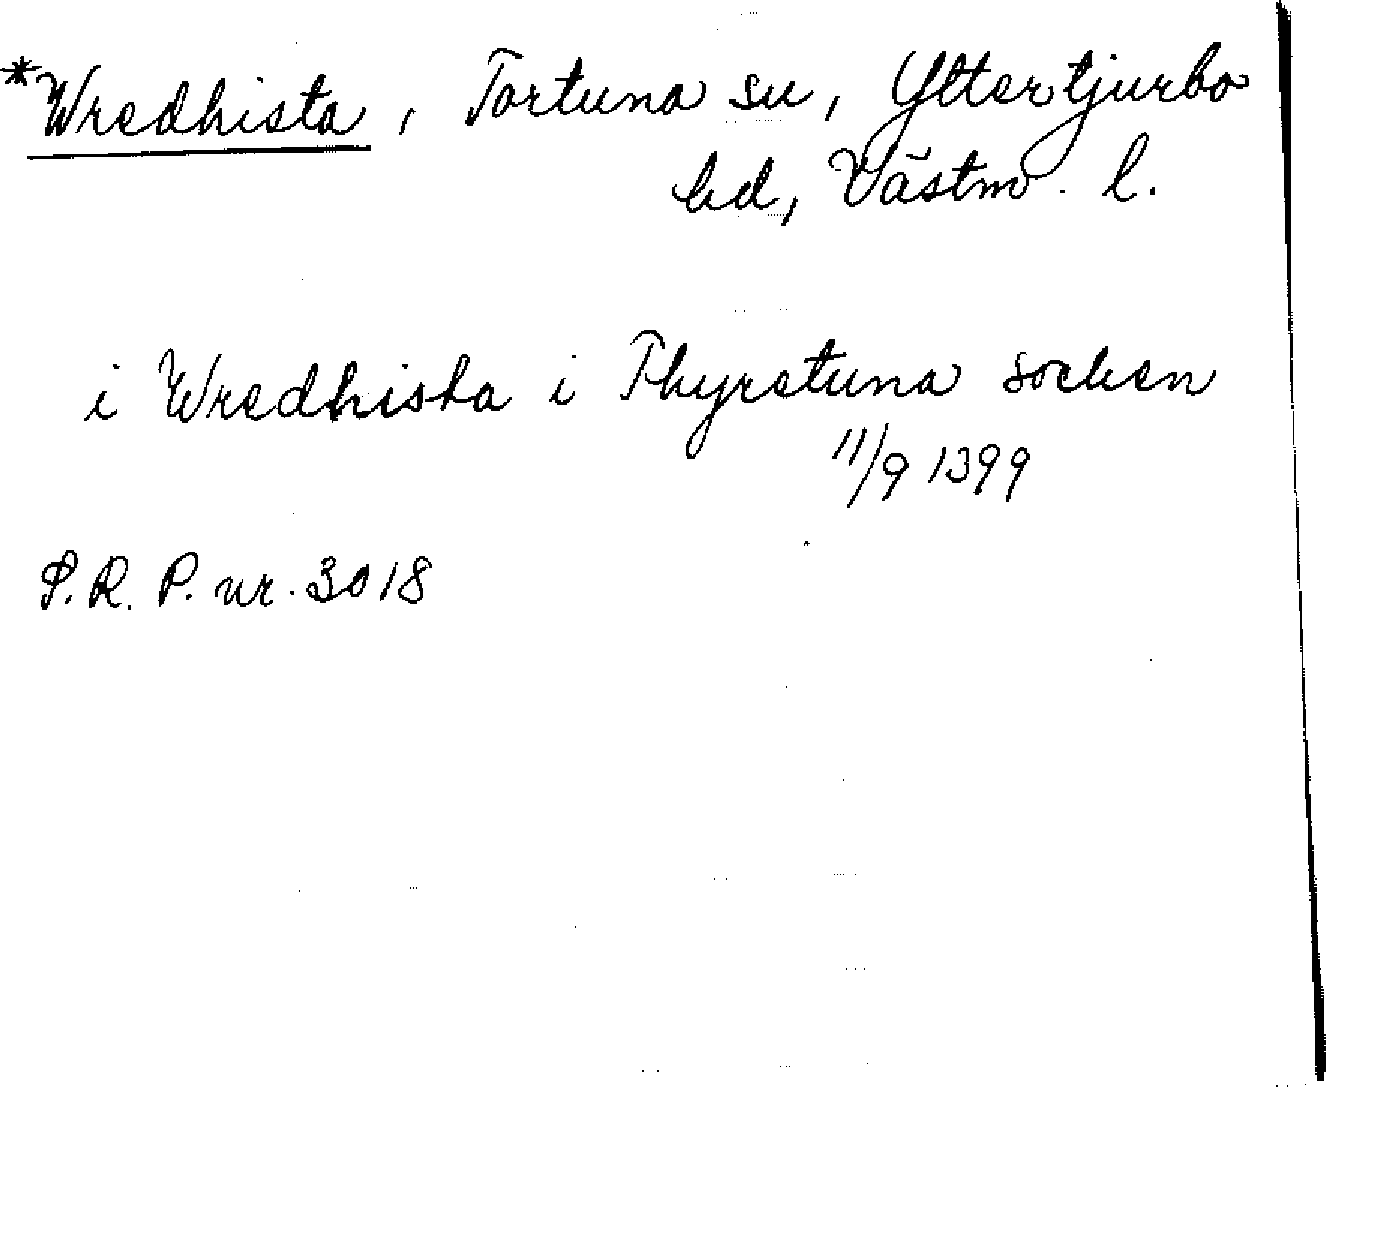 *Wredhista, Tortuna sn, Yttertjurbo
hd, Västm. l.
i Wredhista i Thyrstuna socken
11/9 1399
S.R.P. nr. 3018